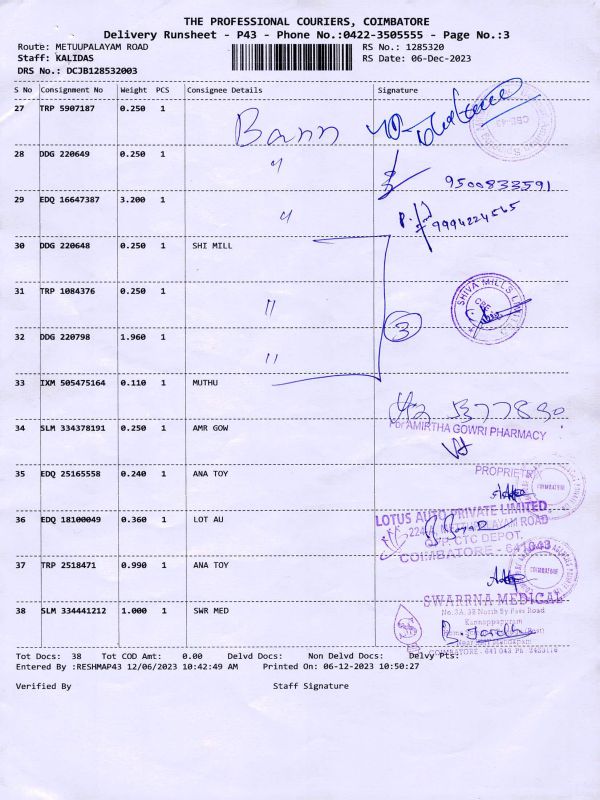 THE PROFESSIONAL COURIERS, COIMBATORE
Delivery Runsheet - P43 - Phone No.:0422-3505555 - Page No.:3
Route: METUUPALAYAM ROAD RS No.: 1285320
Staff: KALIDAS RS Date: 06-Dec-2023
DRS No.: DCJB128532003
S No Consignment No Weight PCS Consignee Details Signature
27 TRP 5907187 0.250 1
28 DDG 220649 0.250 1 〃 9500833591
29 EDQ 16647387 3.200 1 〃
30 DDG 220648 0.250 1 SHI MILL
31 TRP 1084376 0.250 1 〃 SHIVA MILLS LIMITED
32 DDG 220798 1.960 1 〃 3
33 IXM 505475164 0.110 1 MUTHU
34 SLM 334378191 0.250 1 AMR GOW
For AMIRTHA GOWRI PHARMACY
35 EDQ 25165558 0.240 1 ANA TOY
COIMBATORE
36 EDQ 18100049 0.360 1 LOT AU
LOTUS AUTO PRIVATE LIMITED,
CTC DEPOT,
COIMBATORE - 641043
37 TRP 2518471 0.990 1 ANA TOY
COIMBATORE
38 SLM 334441212 1.000 1 SWR MED
SWARNA MEDICAL
Kannappapuram
Tot Docs: 38 Tot COD Amt: 0.00 Delvd Docs: Non Delvd Docs: Delvy Pts:
Entered By :RESHMAP43 12/06/2023 10:42:49 AM Printed On: 06-12-2023 10:50:27
Verified By Staff Signature